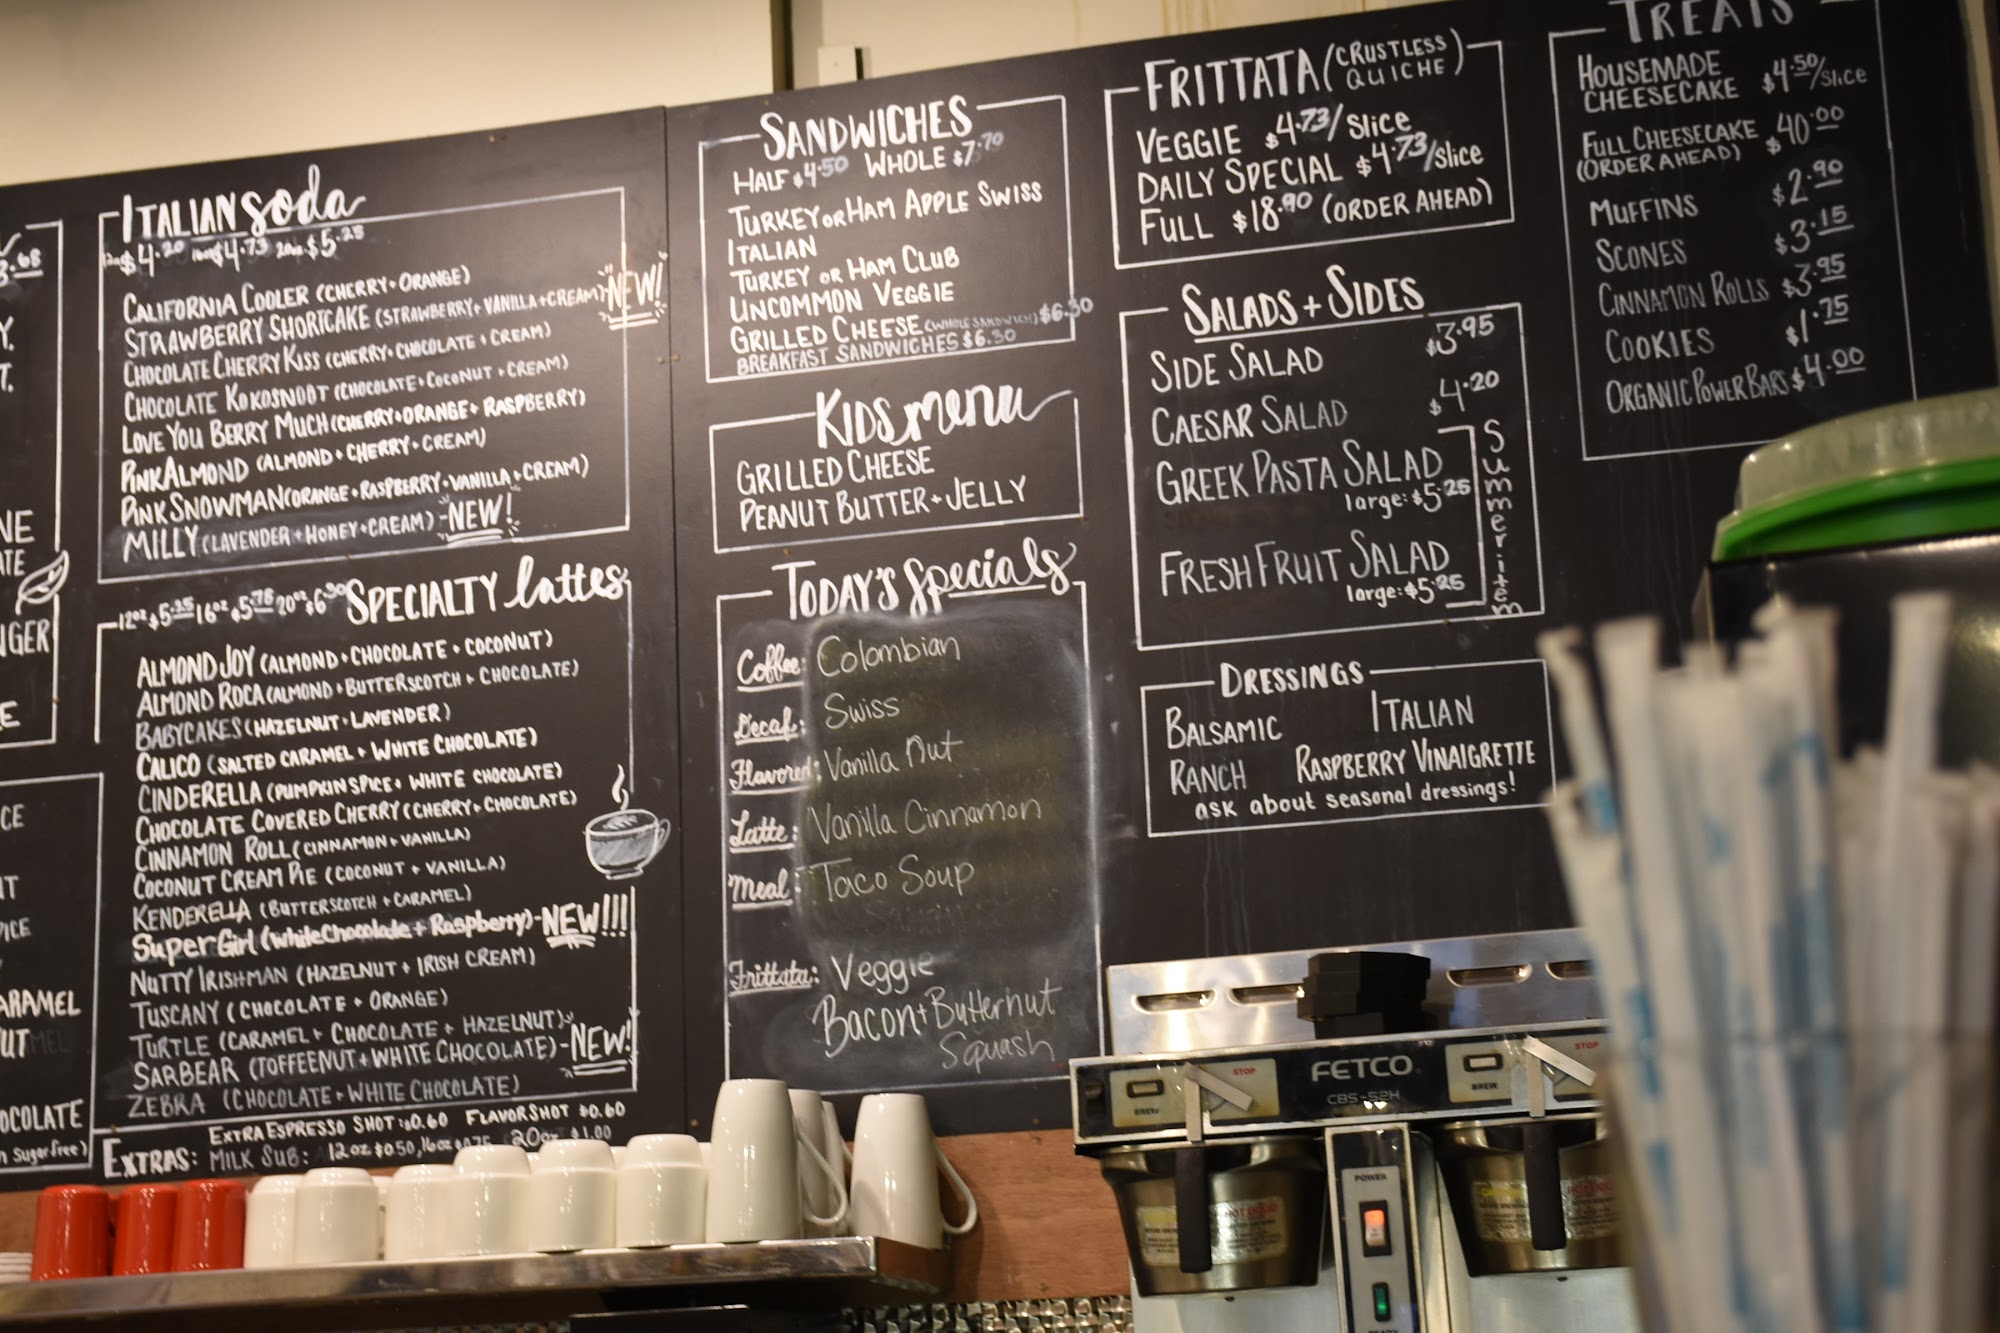 3.68
Y.
T.
NE
ATE
NGER
E
CE
T
ICE
ARAMEL
UT
OCOLATE
n Sugarfree)
ITALIAN soda
12oz $4.20 16oz $4.73 20oz $5.25
CALIFORNIA COOLER (CHERRY+ORANGE)
STRAWBERRY SHORTCAKE (STRAWBERRY+VANILLA+CREAM)-NEW!
CHOCOLATE CHERRY KISS (CHERRY+CHOCOLATE+CREAM)
CHOCOLATE KOKOSNOOT (CHOCOLATE+COCONUT+CREAM)
LOVE YOU BERRY MUCH (CHERRY+ORANGE+RASPBERRY)
PINK ALMOND (ALMOND+CHERRY+CREAM)
PINK SNOWMAN (ORANGE+RASPBERRY+VANILLA+CREAM)
MILLY (LAVENDER+HONEY+CREAM)-NEW!
12oz $5.25 16oz $5.78 20oz $6.30 SPECIALTY lattes
ALMOND JOY (ALMOND+CHOCOLATE+COCONUT)
ALMOND ROCA (ALMOND+BUTTERSCOTCH+CHOCOLATE)
BABYCAKES (HAZELNUT+LAVENDER)
CALICO (SALTED CARAMEL+WHITE CHOCOLATE)
CINDERELLA (PUMPKIN SPICE+WHITE CHOCOLATE)
CHOCOLATE COVERED CHERRY (CHERRY+CHOCOLATE)
CINNAMON ROLL (CINNAMON+VANILLA)
COCONUT CREAM PIE (COCONUT+VANILLA)
KENDERELLA (BUTTERSCOTCH+CARAMEL)
SuperGirl (White Chocolate+Raspberry)-NEW!!!
NUTTY IRISHMAN (HAZELNUT+IRISH CREAM)
TUSCANY (CHOCOLATE+ORANGE)
TURTLE (CARAMEL+CHOCOLATE+HAZELNUT)
SARBEAR (TOFFEENUT+WHITE CHOCOLATE)-NEW!
ZEBRA (CHOCOLATE+WHITE CHOCOLATE)
EXTRAS: EXTRA ESPRESSO SHOT: $0.60 FLAVOR SHOT $0.60
MILK SUB: 12oz $0.50, 16oz $0.75 20oz $1.00
SANDWICHES
HALF $4.50 WHOLE $7.70
TURKEY OR HAM APPLE SWISS
ITALIAN
TURKEY OR HAM CLUB
UNCOMMON VEGGIE
GRILLED CHEESE (WHOLE SANDWICH) $6.30
BREAKFAST SANDWICHES $6.30
KIDS menu
GRILLED CHEESE
PEANUT BUTTER+JELLY
TODAY'S specials
Coffee: Colombian
Decaf: Swiss
Flavored: Vanilla Nut
Latte: Vanilla Cinnamon
Meal: Taco Soup
Frittata: Veggie
Bacon+Butternut
Squash
FRITTATA (CRUSTLESS QUICHE)
VEGGIE $4.73/Slice
DAILY SPECIAL $4.73/slice
FULL $18.90 (ORDER AHEAD)
SALADS+SIDES
SIDE SALAD $3.95
CAESAR SALAD $4.20
GREEK PASTA SALAD
large: $5.25
FRESH FRUIT SALAD
large: $5.25
Summer item
DRESSINGS
BALSAMIC ITALIAN
RANCH RASPBERRY VINAIGRETTE
ask about seasonal dressings!
TREATS
HOUSEMADE CHEESECAKE $4.50/slice
FULL CHEESECAKE $40.00
(ORDER AHEAD)
MUFFINS $2.90
SCONES $3.15
CINNAMON ROLLS $3.95
COOKIES $1.75
ORGANIC POWER BARS $4.00
FETCO
CBS-52H
BREW STOP
BREW STOP
HOT LIQUID
POWER
READY